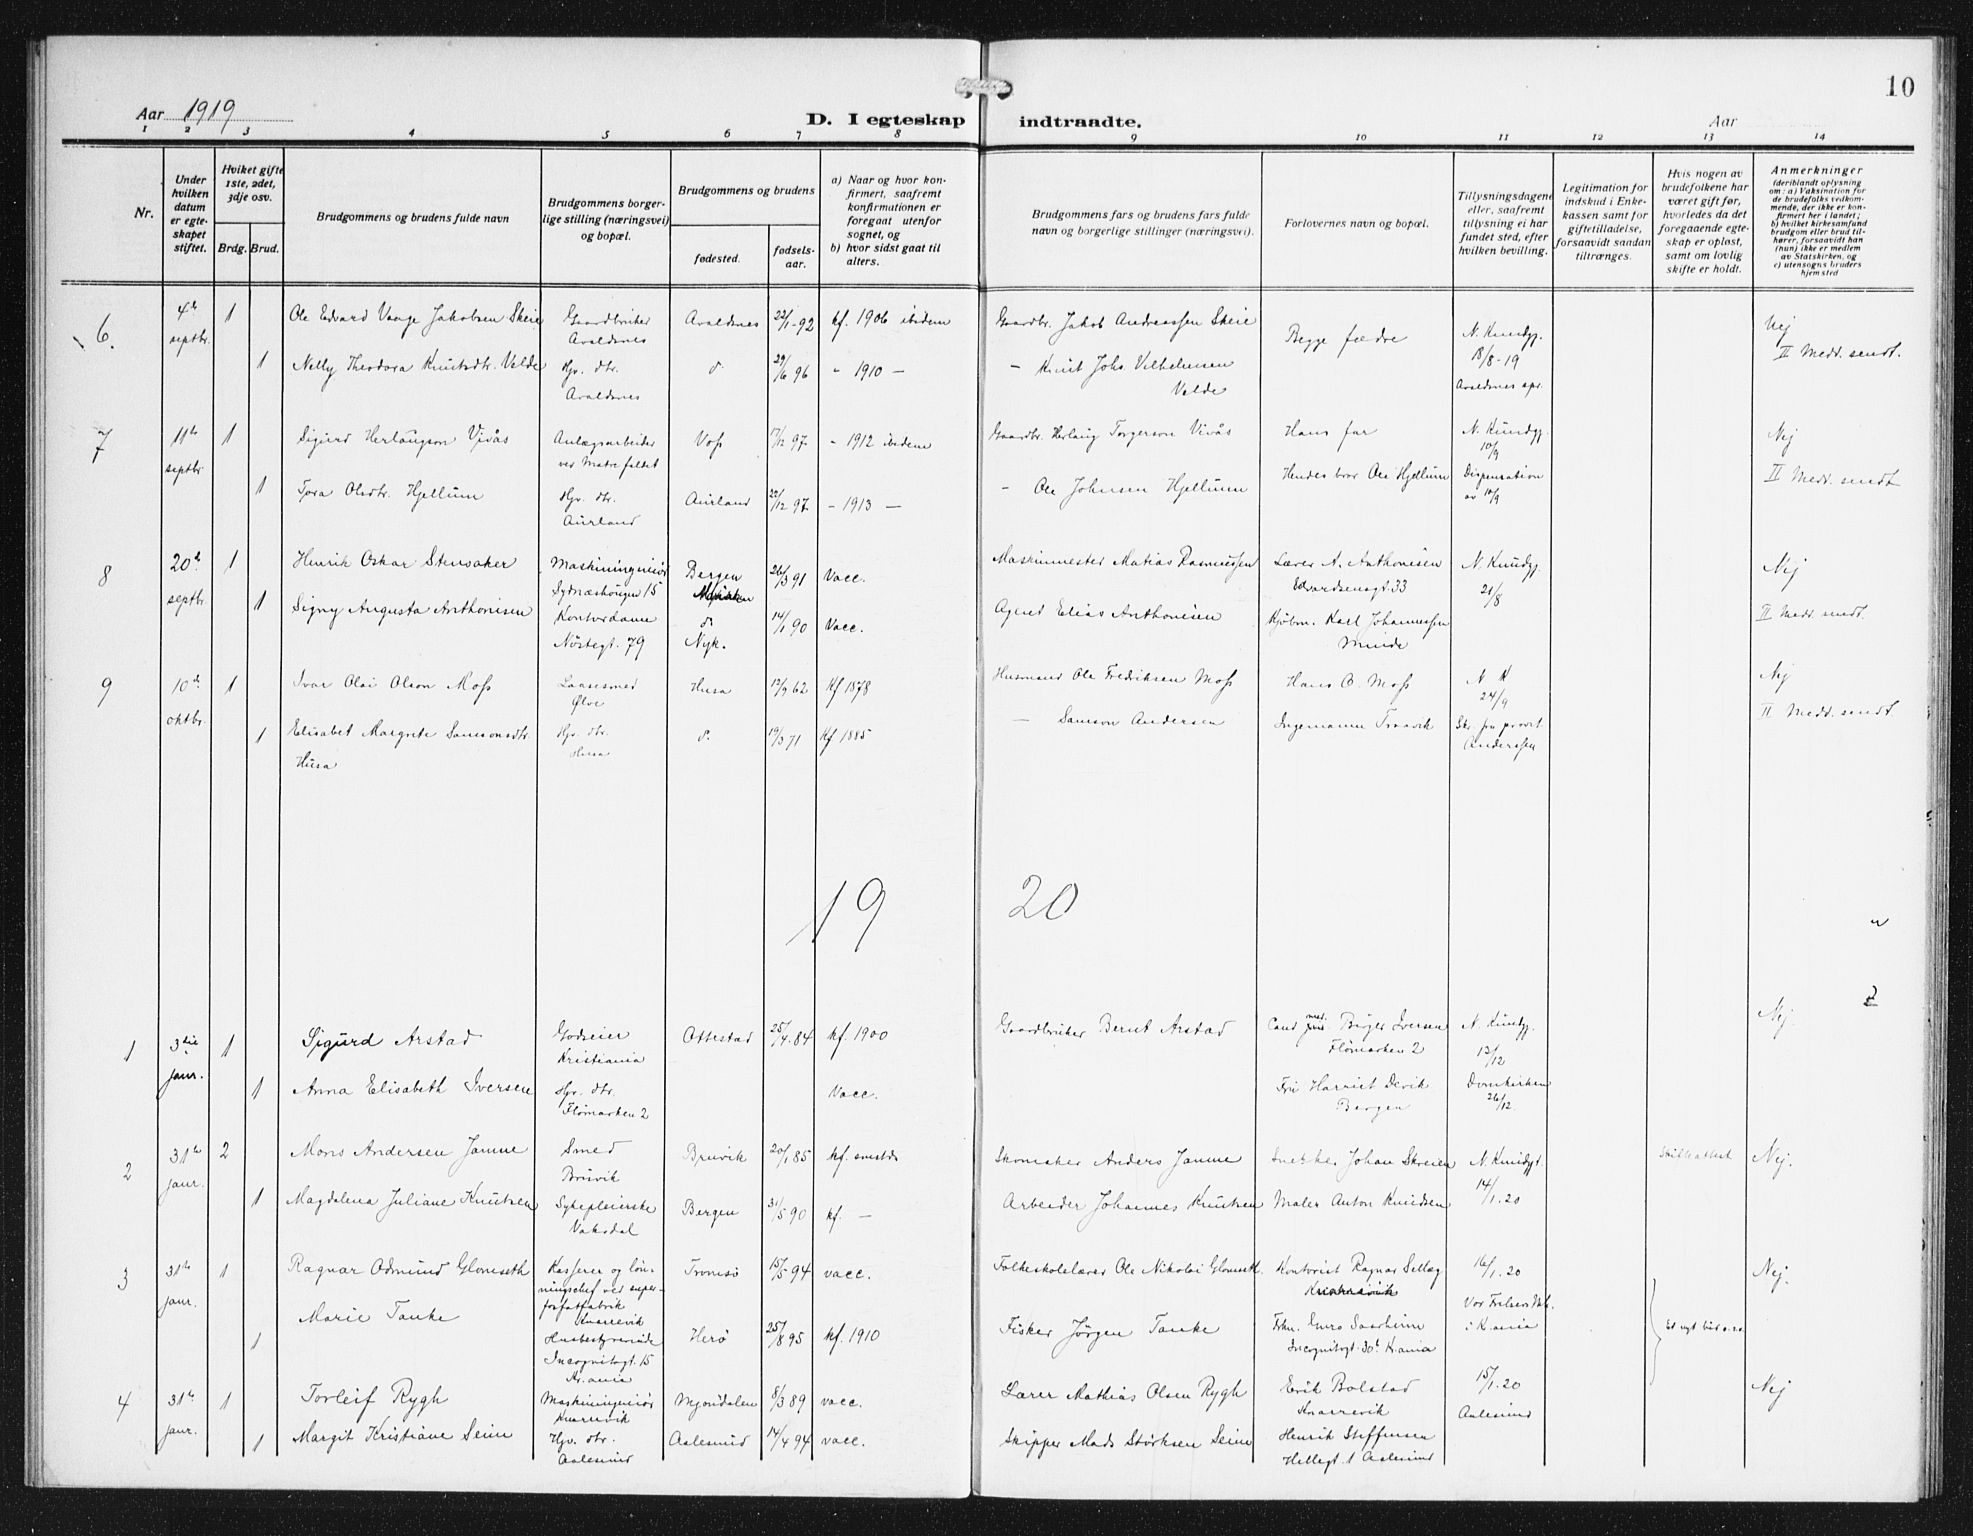 10
Aar 1919
D. I egteskap indtraadte.
Aar
1 2 3 4 5 6 7 8 9 10 11 12 13 14
Nr.
Under hvilken datum er egteskapet stiftet.
Hviket gifte 1ste, 2det, 3dje osv.
Brdg. Brud.
Brudgommens og brudens fulde navn
Brudgommens borgerlige stilling (næringsvei) og bopæl.
Brudgommens og brudens
fødested.
fødselsaar.
a) Naar og hvor konfirmert, saafremt konfirmationen er foregaat utenfor sognet, og
b) hvor sidst gaat til alters.
Brudgommens fars og brudens fars fulde navn og borgerlige stillinger (næringsvei).
Forlovernes navn og bopæl.
Tillysningsdagene eller, saafremt tillysning ei har fundet sted, efter hvilken bevilling.
Legitimation for indskud i Enkekassen samt for giftetilladelse, forsaavidt saadan tiltrænges.
Hvis nogen av brudefolkene har været gift før, hvorledes da det foregaaende egteskap er opløst, samt om lovlig skifte er holdt.
Anmerkninger (deriblandt oplysning om: a) Vaksination for de brudefolks vedkommende, der ikke er konfirmert her i landet; b) hvilket kirkesamfund brudgom eller brud tilhører, forsaavidt han (hun) ikke er medlem av Statskirken, og c) utensogns bruders hjemsted
6. 4de septbr. 1 Ole Edvard Vaage Jakobsen Skeie Gaardbruker Avaldsnes Avaldsnes 22/1-92 kf. 1906 ibidem Gaardbr. Jakob Andreassen Skeie Begge fædre N. Kundgj. 18/8-19 Avaldsnes spr. Nej
II Medd. sendt.
1 Nelly Theodora Knutsdtr. Velde Hjv. dtr. Avaldsnes d. 29/6 96 " 1910 — — Knut Johs. Vilhelmsen Velde
7 11te septbr 1 Sigurd Herlaugson Vivås Anlægsarbeider ved Matrefaldet Voss 17/12 97 - 1912 ibidem Gaardbr. Herlaug Torgerson Vivås Hans far N. Kundgj. 10/9 Nej
1 Tora Olsdtr. Hjellum Hjv. dtr. Aurland Aurland 22/12 97 - 1913 — - Ole Johnsen Hjellum Hendes bror Ole Hjellum Dispensation av 10/9 II Medd. sendt
8 20de septbr. 1 Henrik Oskar Stensaker Maskiningeniør Sydnæshaugen 15 Bergen 26/3 91 Vacc. Maskinmester Matias Rasmussen Lærer A. Anthonisen Edvardsensgt. 33 N. Kundgj. 21/8 Nej
1 Signy Augusta Anthonisen Kontordame Nøstegt. 79 d. Nyk. 14/1 90 Vacc. Agent Elias Anthonisen Kjøbm. Karl Johannessen Minde II Medd. sendt.
9 10de oktbr. 1 Ivar Olai Olson Moss Laasesmed Ølve Husa 12/9 62 Kf 1878 Husmand Ole Fredriksen Moss Hans O. Moss N K 24/9 Nej
1 Elisabet Margrete Samsonsdtr. Husa Hjv. dtr. Husa d. 19/3 71 Kf 1885 — Samson Andersen Ingemann Traavik Skr. fra provst Anderssen II Medd. sendt
19 20
1 3die janr. 1 Sigurd Arstad Godseier Kristiania Ottestad 25/4.84 kf. 1900 Gaardbruker Bernt Arstad Cand med. Birger Iversen Flømarken 2 N. Kundgj. 13/12 Nej.
1 Anna Elisabeth Iversen Hjv. dtr. Flømarken 2 Vacc. Fru Harriet Devik Bergen Domkirken 26/12.
2 31te janr. 2 Mons Andersen Jamne Smed Bruvik Bruvik 20/1 85 kf. Skomaker Anders Jamne Snekker Johan Skreien N. Kundgj. 14/1.20 Skifteattest Nej.
1 Magdalena Juliane Knutsen Sykepleierske Vaksdal Bergen 31/5 90 kf. — Arbeider Johannes Knutsen Maler Anton Knudsen
3 31te janr. 1 Ragnar Odmund Glomseth Kasserer og lønningschef ved superfosfatfabrik Knarrevik Tromsø 15/5 94 vacc. Folkeskolelærer Ole Nikolai Glomseth. Kontorist Ragnar Sellæg Knarrevik 16/1.20 Nej.
1 Marie Tanke Husbestyrerinde Incognitogt. 15 Kr.ania Herø 25/8 95 kf. 1910 Fisker Jørgen Tanke Frkn. Guro Saarheim Incognitogt. 30b K.ania Vor Frelsers Mk. i K.ania
4 31te janr. 1 Torleif Rygh Maskiningeniør Knarrevik Mjøndalen 8/3 89 vacc. Lærer Mathias Olsen Rygh Eerik Bolstad Knarrevik 15/1.20 Nej
1 Margit Kristiane Seim Hjv. dtr. Aalesund Aalesund 14/4 94 vacc. Skipper Mads Størksen Seim Henrik Steffensen Hellegt. 1 Aalesund Aalesund